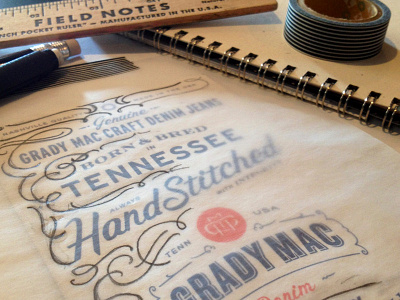 FIELD NOTES
INCH POCKET RULER — MANUFACTURED IN THE U.S.A.
NASHVILLE
Genuine
GRADY MAC CRAFT DENIM JEANS
BORN & BRED
IN
TENNESSEE
ALWAYS
Hand Stitched
WITH INTEGRITY
TENN
USA
GRADY MAC
Denim